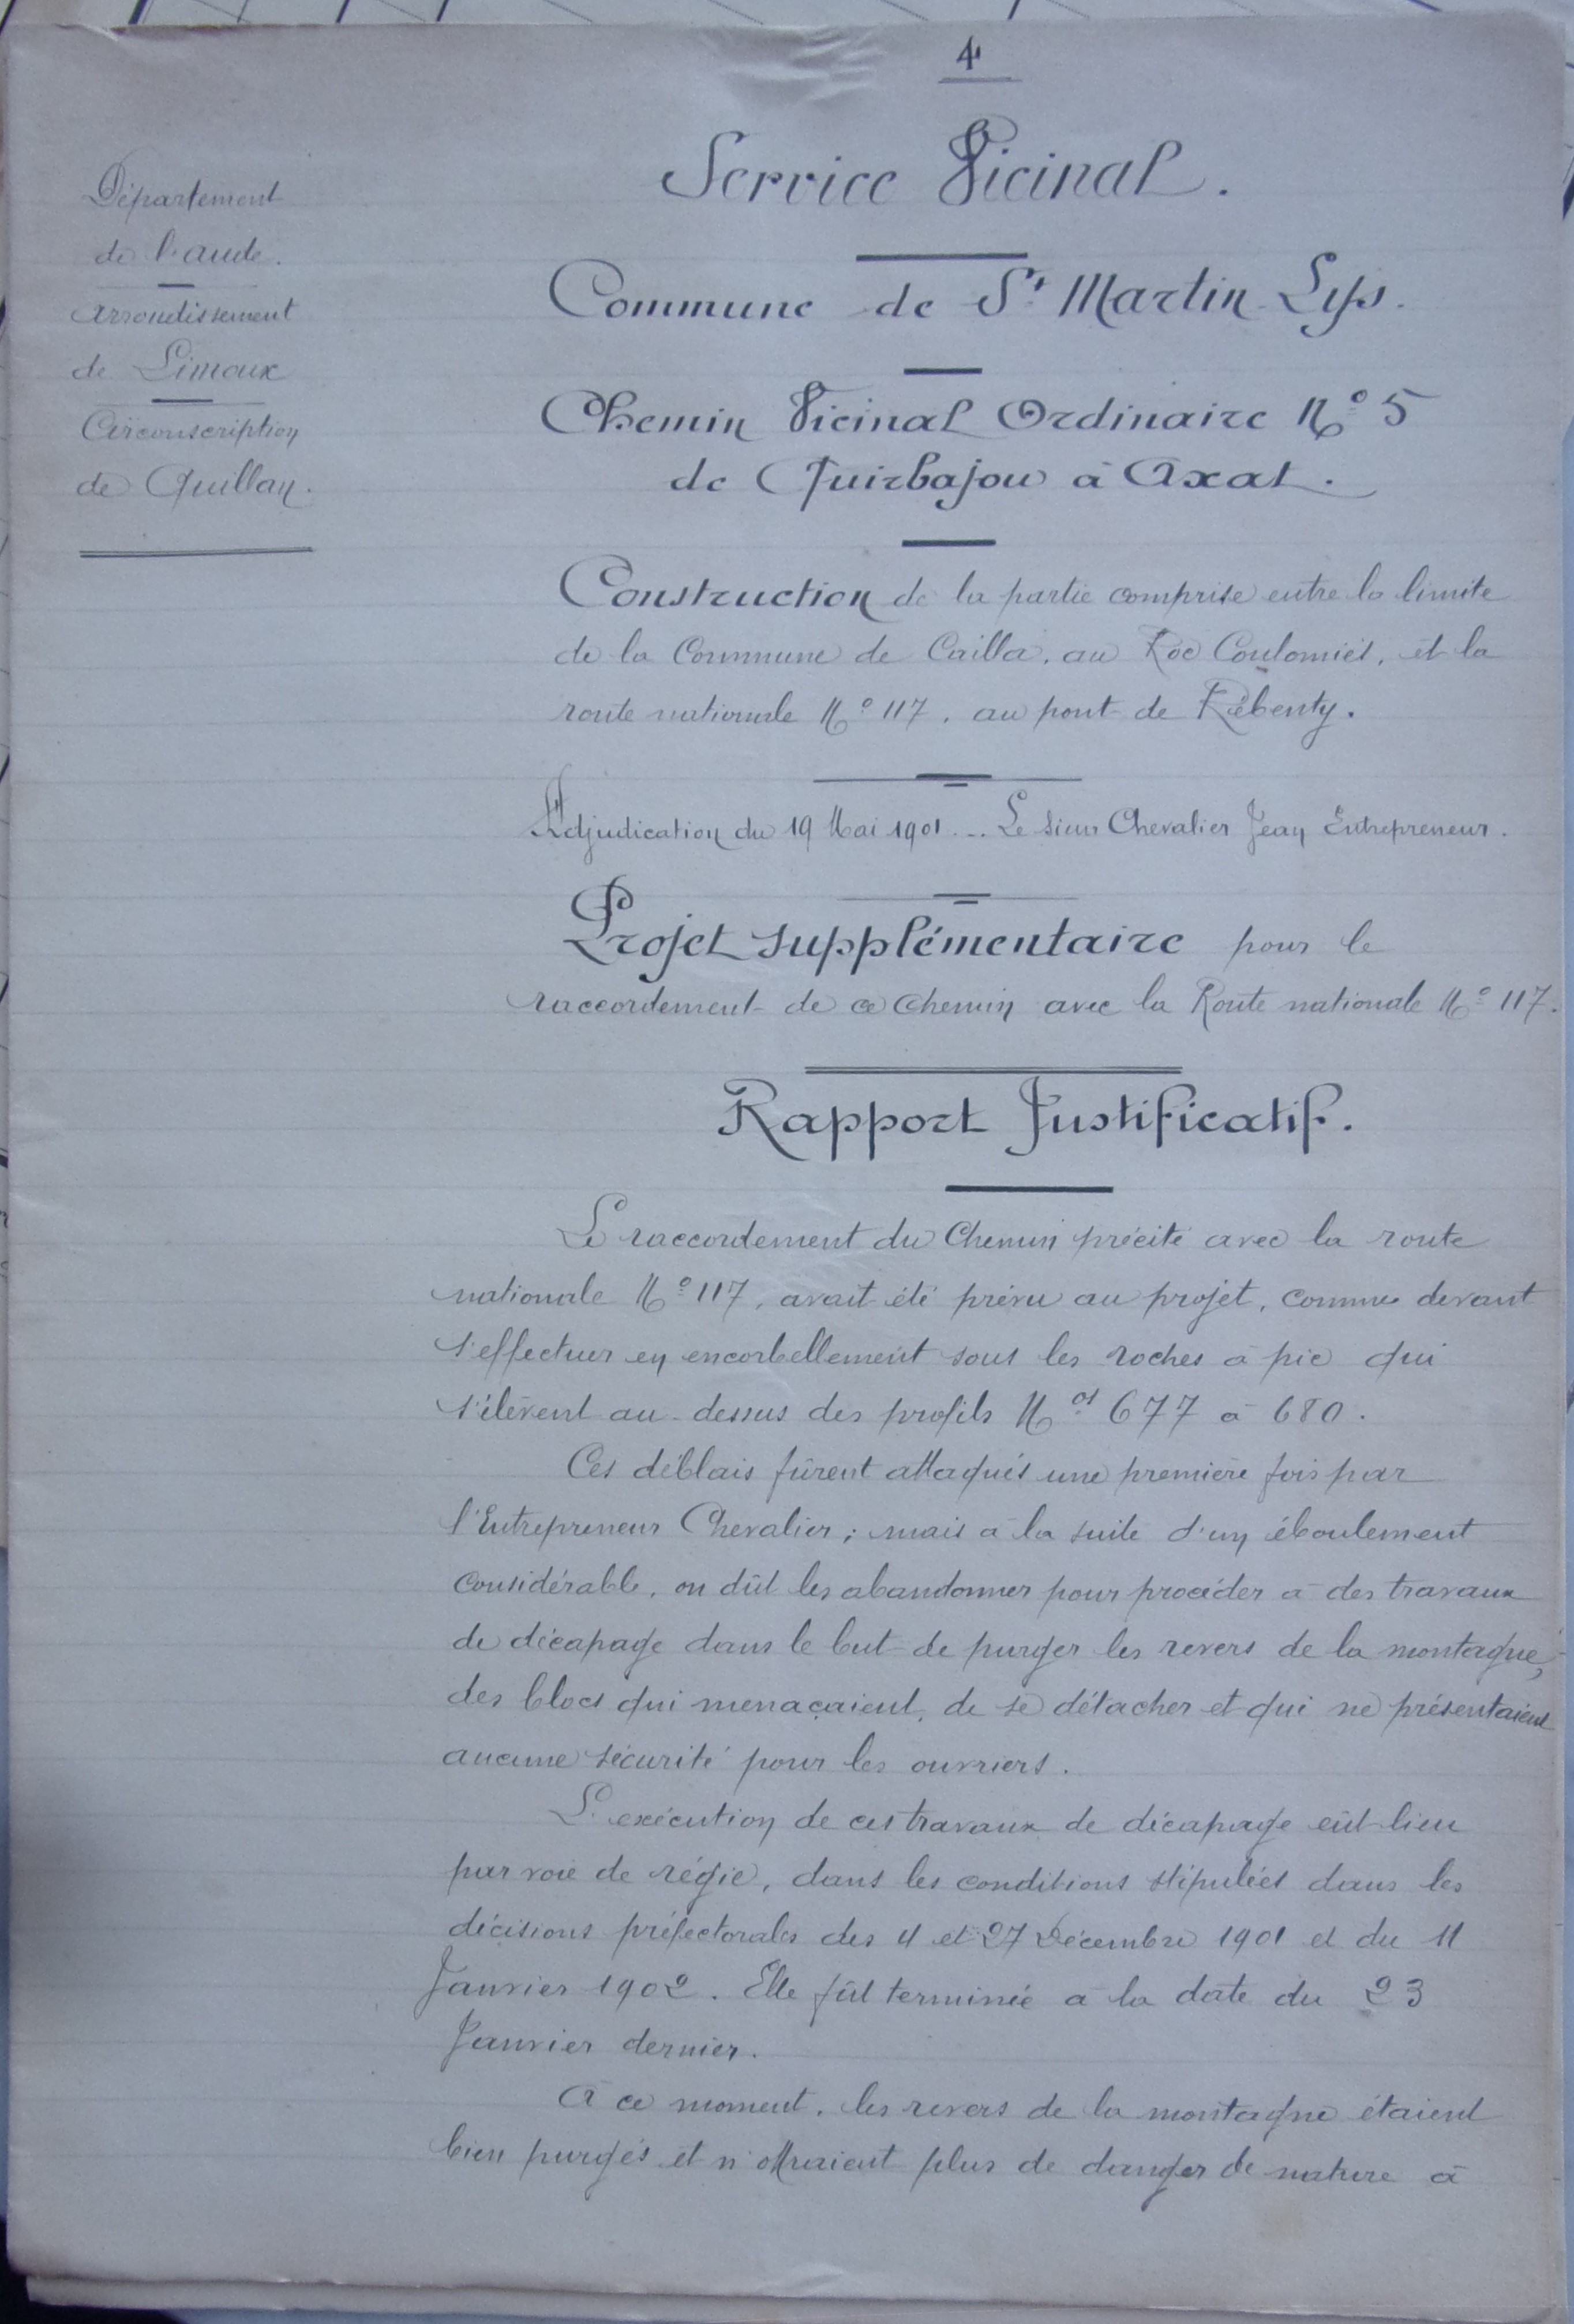 4
Département
de l'aude.
Arrondissement
de Limoux
Circonscription
de Quillan.
Service Vicinal.
Commune de St Martin Lys.
Chemin Vicinal Ordinaire No 5
de Quirbajou à Axat.
Construction de la partie comprise entre la limite
de la Commune de Cailla, au Roc Coulomiès, et la
route nationale No 117, au pont de Rébenty.
Adjudication du 19 Mai 1901 ... Le sieur Chevalier Jean Entrepreneur.
Projet supplémentaire pour le
raccordement de ce chemin avec la Route nationale No 117.
Rapport Justificatif.
Le raccordement du Chemin précité avec la route
nationale No 117, avait été prévu au projet, comme devant
s'effectuer en encorbellement sous les roches à pic qui
s'élèvent au-dessus des profils Nos 677 à 680.
Ces déblais fûrent attaqués une première fois par
l'Entrepreneur Chevalier; mais à la suite d'un éboulement
considérable, on dût les abandonner pour procéder à des travaux
de décapage dans le but de purger les revers de la montagne,
des blocs qui menaçaient, de se détacher et qui ne présentaient
aucune sécurité pour les ouvriers.
L'exécution de ces travaux de décapage eût lieu
par voie de régie, dans les conditions stipulées dans les
décisions préfectorales des 4 et 27 Décembre 1901 et du 11
Janvier 1902. Elle fût terminée à la date du 23
Janvier dernier.
A ce moment, les revers de la montagne étaient
bien purgés et n'offraient plus de danger de nature à